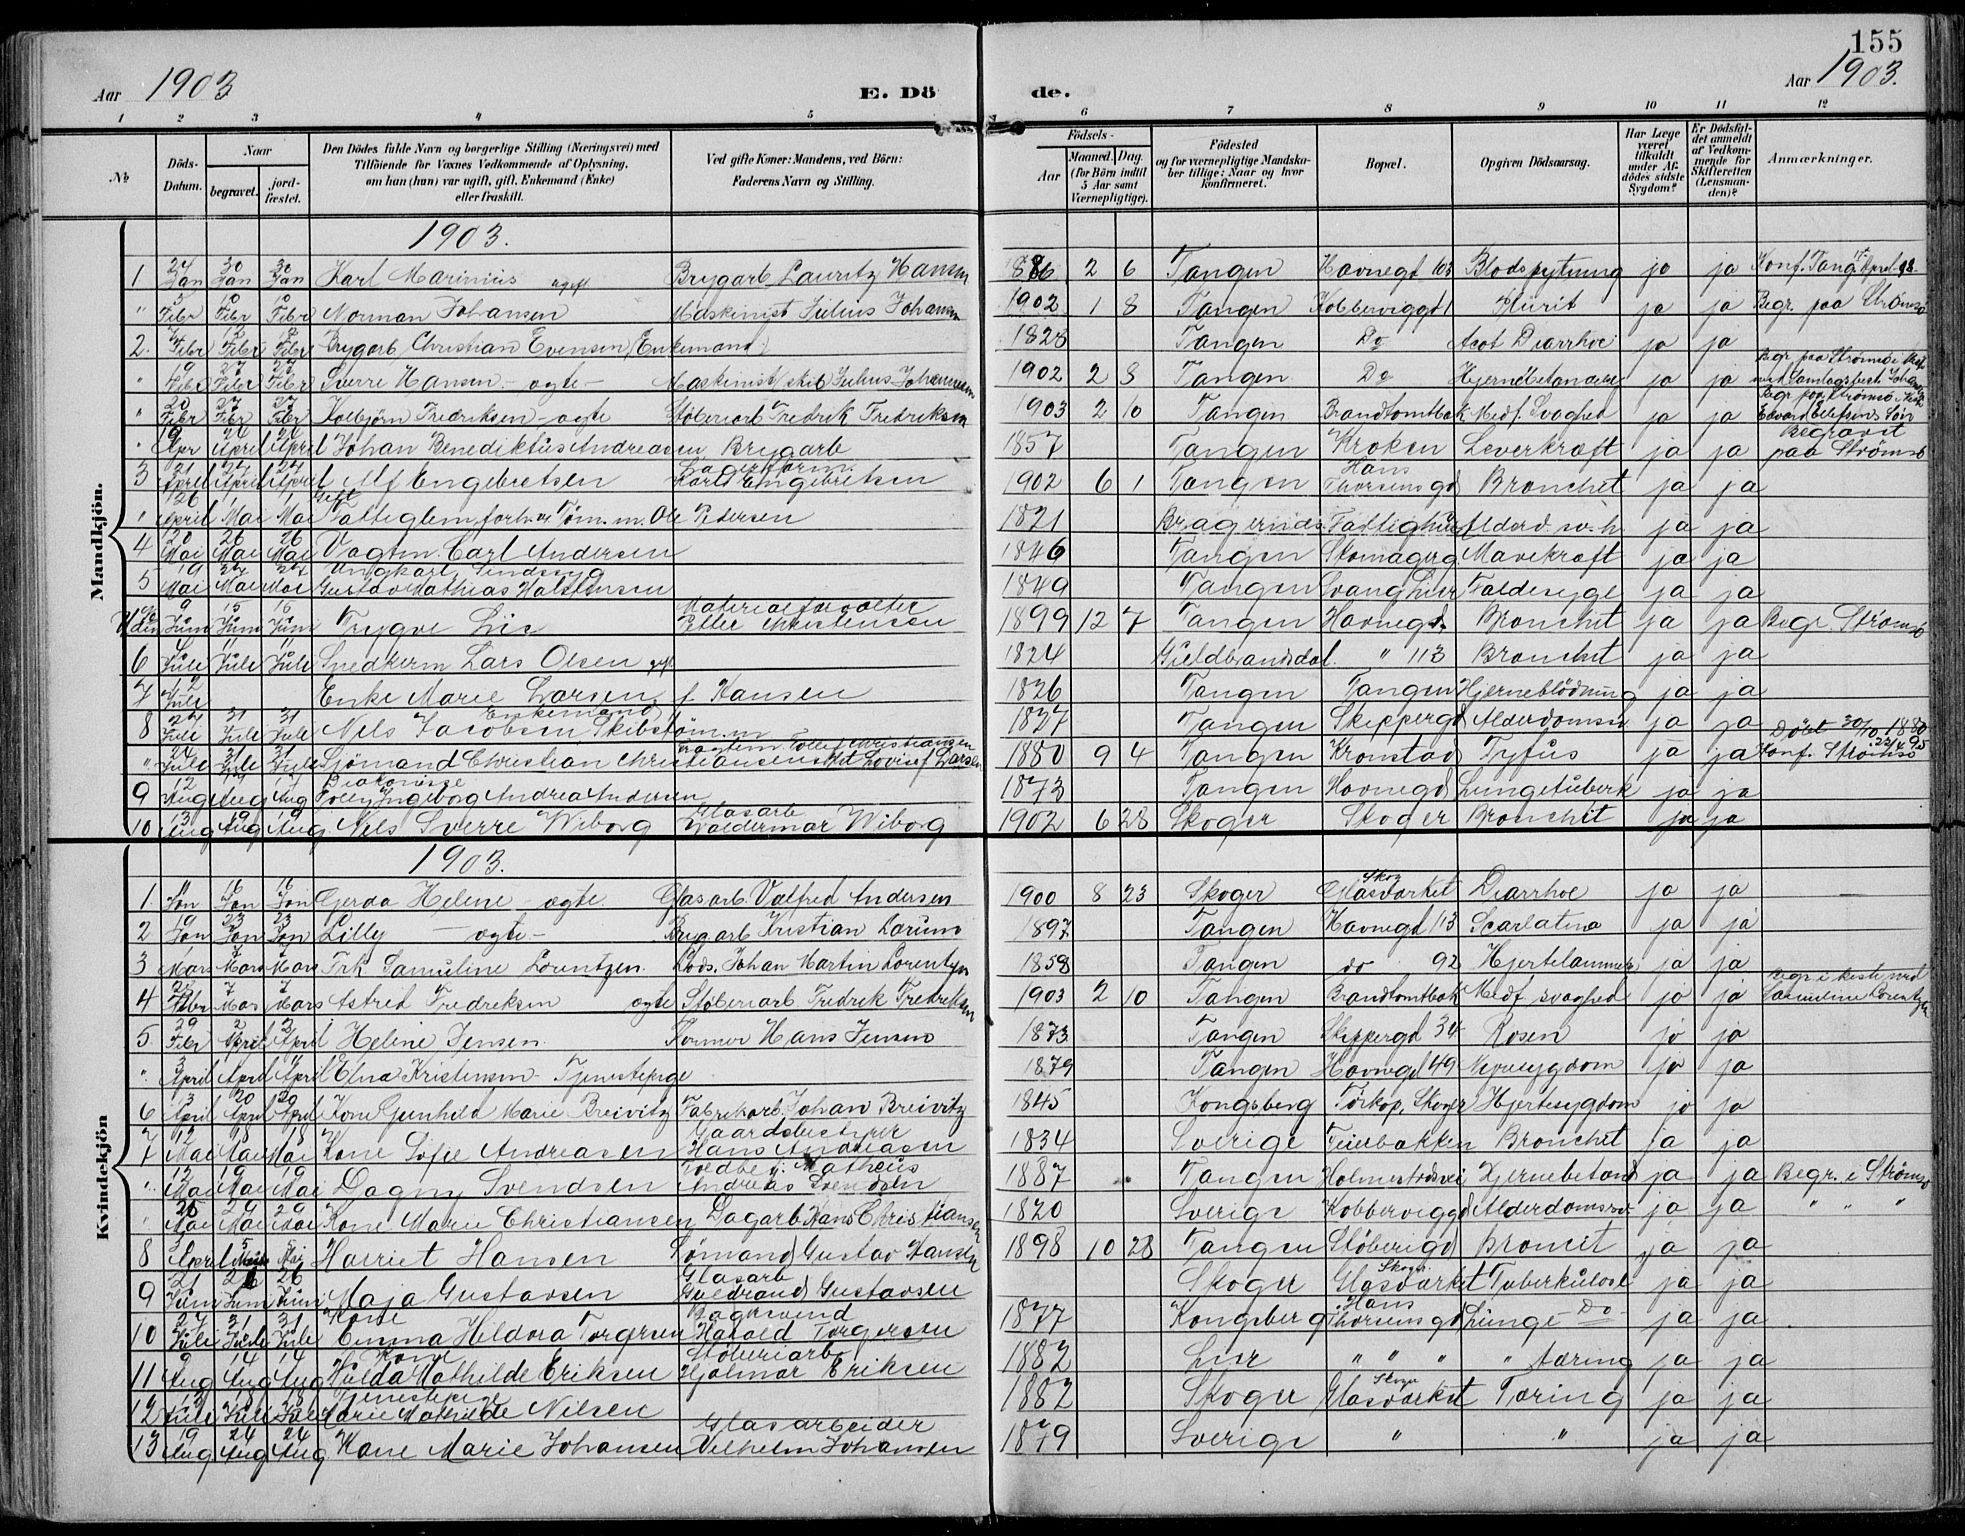 155
Aar 1903
E. Dö de.
Aar 1903.
1 2 3 4 5 6 7 8 9 10 11 12
No
Döds-Datum.
Naar
begravet.
jord-fæstet.
Den Dödes fulde Navn og borgerlige Stilling (Næringsvei) med
Tilföiende for Voxnes Vedkommende af Oplysning,
om han (hun) var ugift, gift, Enkemand (Enke)
eller fraskilt.
Ved gifte Koner: Mandens, ved Börn:
Faderens Navn og Stilling.
Födsels-
Aar
Maaned. Dag.
(for Börn indtil
5 Aar samt
Værnepligtige).
Födested
og for værnepligtige Mandska-
ber tillige: Naar og hvor
konfirmeret.
Bopæl.
Opgiven Dödsaarsag.
Har Læge
været
tilkaldt
under Af-
dödes sidste
Sygdom?
Er Dödsfal-
det anmeldt
af Vedkom-
mende for
Skifteretten
(Lensman-
den)?
Anmærkninger.
Mandkjön.
1903.
1 24 Jan 30 Jan 30 Jan Karl Marinius ugift Brygarb. Lauritz Hansen 1886 2 6 Tangen Havnegd 103 Blodspytning ja ja
" 5 Febr 10 Febr 10 Febr Norman Johansen Maskinist Julius Johansen 1902 1 8 Tangen Kobberviggd 1 Plurit ja ja Begr. paa Strømsø
2. Febr 12 Febr Febr Brygarb. Christian Evensen (Enkemand) 1828 Tangen Do Acot Diarrhoe ja ja
" 19 Febr 27 Febr 27 Febr Sverre Hansen - ægte - Maskinist Julius Johannesen 1902 2 8 Tangen Do ja ja Begr. paa Strømsø
" 20 Febr 27 Febr 27 Febr Kolbjørn Fredriksen - ægte Støberiarb Fredrik Fredriksen 1903 2 10 Tangen Brandtomtbak Medf. Svaghed ja ja
" 19 Apr 24 April 24 April Johan Benediktus Andreasen, Brygarb 1857 Tangen Kroken Leverkræft ja ja Begravet paa Strømsø
3 21 April 24 April 24 April Alf Engebretsen Karl Engebretsen 1902 6 1 Tangen Hans Thorsensgd Bronchit ja ja
" 26 April 1 Mai 1 Mai Gift Fattiglem, forhv Tøm. m. Ole Pedersen 1821 Bragernes Fattighus Alderd. sv. h. ja ja
4 20 Mai 26 Mai 26 Mai Vagtm. Carl Andersen 1846 Tangen Skomagerg Mavekræft ja ja
5 19 Mai 24 Mai 24 Mai Ungkarl, Sindssyg Gustav Mathias Halstensen 1849 Tangen Faldesyge ja ja
9 Juni 15 Juni 16 Juni Trygve Lie Materialforvalter Petter Christensen 1899 12 7 Tangen Havnegd. Bronchit ja ja Begr. Strømsø
6 Juli 11 Juli 11 Juli Snedkerm Lars Olsen gift 1824 Guldbrandsdal. " 113 Bronchit ja ja
7 12 Juli Enke Marie Larsen, f. Hansen 1826 Tangen Tangen Hjerneblödning ja ja
8 24 Juli 31 Juli 31 Juli Enkemand Nels Jacobsen Skibstøm.m 1827 Tangen Skippergd Alderdomssv ja ja
" 24 Juli 31 Juli 31 Juli Sjömand Christian Christiansen 1880 9 4 Tangen Kronstad Tyfus ja ja Døbt 30/10 1880 Konf. Strømsø 95
9 12 Aug Aug Aug Diakonisse Polly Ingeborg Andrea Andersen 1873 Tangen Havnegd Lungetuberk ja ja
10 13 Aug 19 Aug 19 Aug Nils Sverre Wiborg Glasarb Valdermar Wiborg 1902 6 28 Skoger Skoger Bronchit ja ja
Kvindekjön
1903.
1. 11 Jan 16 Jan 16 Jan Gerda Helene - ægte Glasarb. Valfred Andersen 1900 8 23 Skoger Skog Glasværket Diarrhoe ja ja
2 19 Jan 23 Jan 23 Jan Lilly - ægte - Brygarb Kristian Larsen 1897 Tangen Havnegd 113 Scarlatina ja ja
3 Mars 7 Mars 7 Mars Frk Samuline Lorentzen. Lods. Johan Martin Lorentzen 1858 Tangen do 92 Hjertelammelse ja ja
4 Febr 7 Mars 7 Mars Astrid Fredriksen ægte Støberiarb Fredrik Fredriksen 1903 2 10 Tangen Brandtomtbak Medf svaghed ja ja Begr. i kiste med Samuline Lorentzen
5 29 2 April 2 April Heline Jensen. Former Hans Jensen 1873 Tangen Skippergd 34 Rosen ja ja
" 3 April April April Elna Kristensen Tjenestepige 1879 Tangen Havnegd 49 Nyresygdom ja ja
6 13 April 20 April 20 April Kone Gunhild Marie Breivitz Fabrikarb. Johan Breivitz 1845 Kongsberg Tørkop, Skoger Hjertesygdom ja ja
7 12 Mai 18 Mai 18 Mai Kone Sofie Andreasen Gaardsbestyrer Hans Andreasen 1834 Sverige Feierbakken Bronchit ja ja
" 13 Mai 19 Mai 19 Mai Dagny Svendsen Mathæus Andreas Svendsen 1887 Tangen Holmestrdsvei Hjernebetænd ja ja Begr. i Strømsø
" 25 Mai 29 Mai 29 Mai Kone Marie Christiansen Dagarb Hans Christiansen 1820 Sverige Kobberviggd Alderdomssv ja ja " " "
8 April 5 Mai Harriet Hansen Sømand Gustav Hansen 1898 10 28 Tangen Støberigd Broncit ja ja
9 21 Juni 26 Juni 26 Juni Maja Gustavsen Glasarb Gustavsen Skoger Skoger Glasværket Tuberkulose ja ja
10 27 Juli 31 Juli 31 Juli Kone Emma Hildora Torgersen Bagersvend Harald Torgersen 1877 Kongsberg Hans Thorsensgd Lunge - Do - ja ja
11 9 Aug 14 Aug 14 Aug Kone Hulda Mathilde Eriksen Støberiarb Hjalmar Eriksen 1882 Lier " " " " tæring ja ja
12 13 Juli 18 Juli 18 Juli Tjenestepige Marie Mathilde Nilsen 1882 Skoger Skoger Glasværket Tæring ja ja
13 19 Aug 24 Aug 24 Aug Kone Marie Johansen Glasarbeider Vilhelm Johansen 1879 Sverige " " ja ja